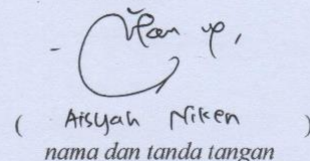 ( Aisyah Niken )
nama dan tanda tangan